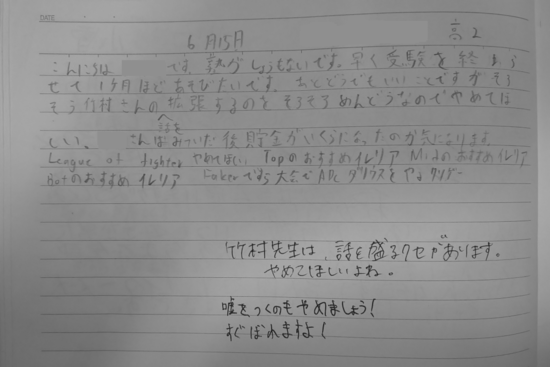 DATE
6月15日 高2
こんにちは です。熱がしょうもないです。早く受験を終わら
せて1ヶ月ほどあそびたいです。あとどうでもいいことですがそろ
そろ竹村さんの話を拡張するのをそろそろめんどうなのでやめてほ
しい。 さんはみついた後貯金がいくらになったのか気になります。
League of fighter やめてほしい。Topのおすすめイレリア Midのおすすめイレリア
Botのおすすめイレリア Fakerですら大会でADC ダリウスを
竹村先生は、話を盛るクセがあります。
やめてほしいよね。
嘘をつくのもやめましょう!
すぐばれますよ!